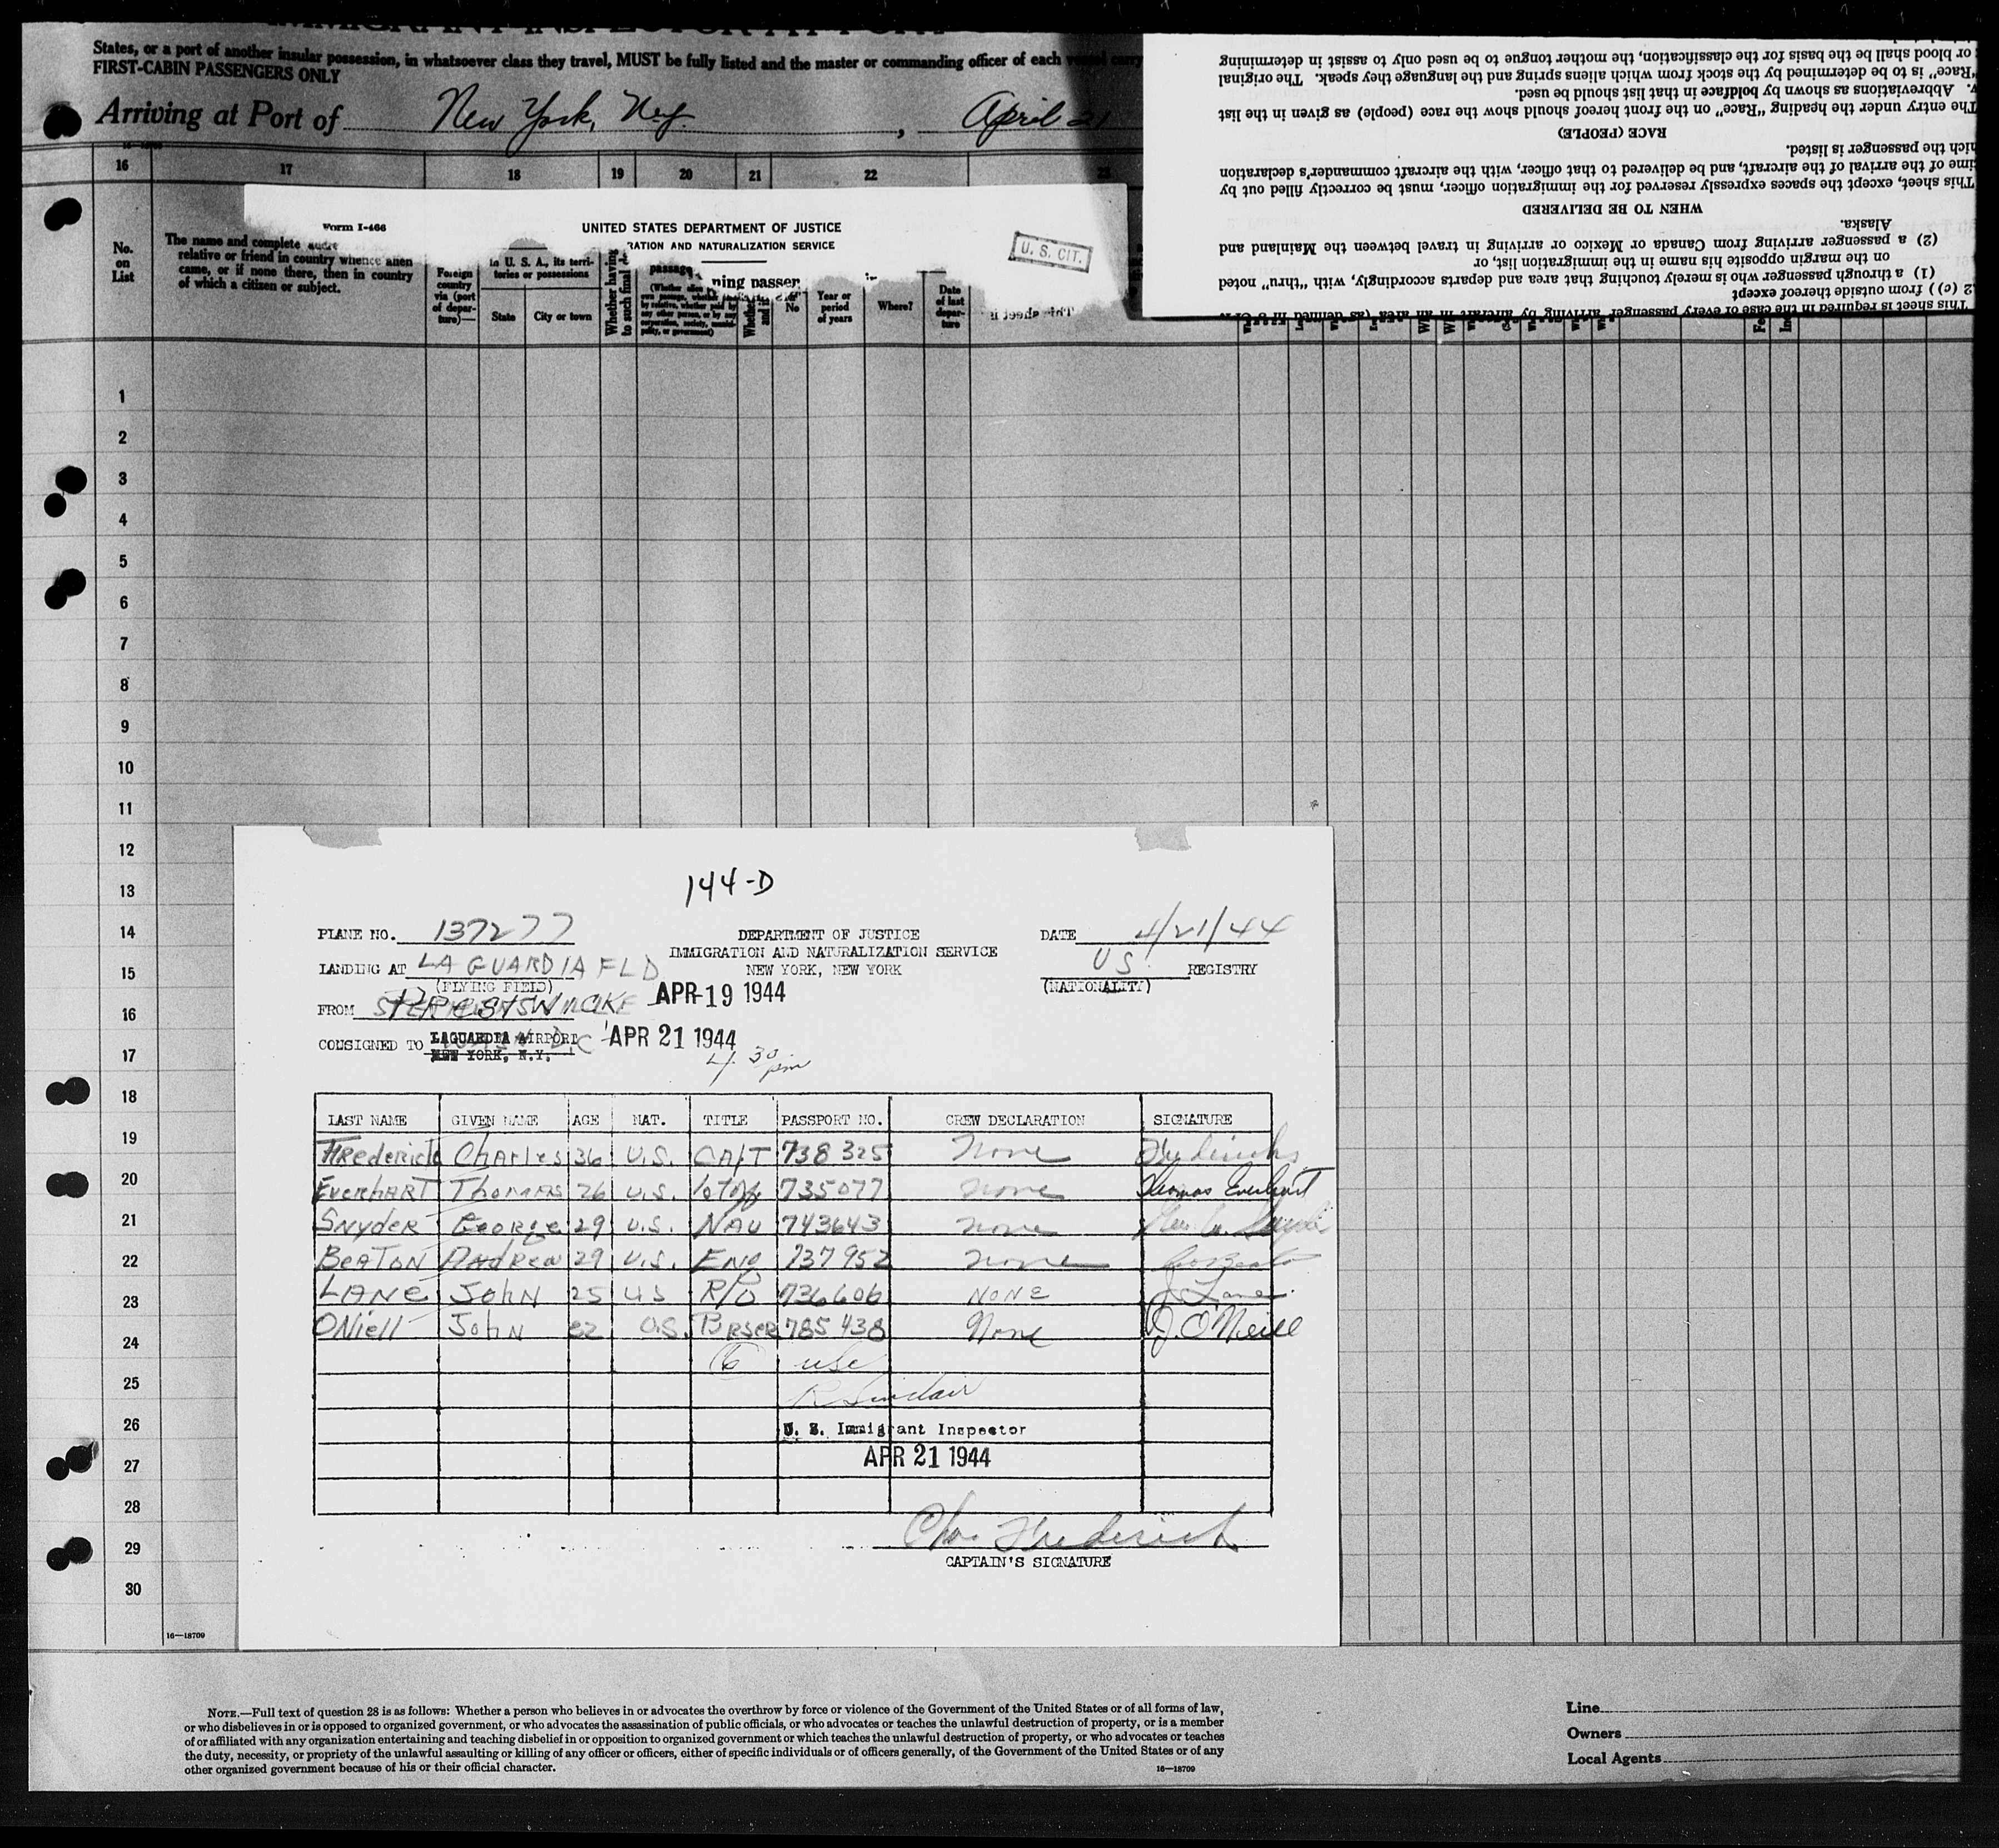 States, or a port of another insular possession, in whatsoever class they travel, MUST be fully listed and the master or commanding officer of each vessel carry
FIRST-CABIN PASSENGERS ONLY
Arriving at Port of New York, N.Y. , April 21
16 17 18 19 20 21 22 23
Form I-466
UNITED STATES DEPARTMENT OF JUSTICE
RATION AND NATURALIZATION SERVICE
U. S. CIT.
No. on List
The name and complete
relative or friend in country whence alien
came, or if none there, then in country
of which a citizen or subject.
Foreign country via (port of departure)—
in U. S. A., its territories or possessions
State
City or town
Whether having
to such final
passage
ning passer
No
Year or period of years
Where?
Date of last departure
This sheet is required in the case of every passenger arriving by aircraft in an area (as defined in
2 (c)) from outside thereof except
(1) a through passenger who is merely touching that area and departs accordingly, with "thru" noted
on the margin opposite his name in the immigration list, or
(2) a passenger arriving from Canada or Mexico or arriving in travel between the Mainland and
Alaska.
WHEN TO BE DELIVERED
This sheet, except the spaces expressly reserved for the immigration officer, must be correctly filled out by
time of the arrival of the aircraft, and be delivered to that officer, with the aircraft commander's declaration
which the passenger is listed.
RACE (PEOPLE)
The entry under the heading "Race" on the front hereof should show the race (people) as given in the list
. Abbreviations as shown by boldface in that list should be used.
"Race" is to be determined by the stock from which aliens spring and the language they speak. The original
or blood shall be the basis for the classification, the mother tongue to be used only to assist in determining
1
2
3
4
5
6
7
8
9
10
11
12
13
14
15
16
17
18
19
20
21
22
23
24
25
26
27
28
29
30
16—18709
144-D
PLANE NO. 137277
DEPARTMENT OF JUSTICE
DATE 4/21/44
IMMIGRATION AND NATURALIZATION SERVICE
LANDING AT LA GUARDIA FLD
NEW YORK, NEW YORK
US REGISTRY
(FLYING FIELD)
(NATIONALITY)
FROM PRESTWICKE APR 19 1944
CONSIGNED TO LAGUARDIA AIRPORT APR 21 1944
NEW YORK, N.Y.
4 30 pm
LAST NAME GIVEN NAME AGE NAT. TITLE PASSPORT NO. CREW DECLARATION SIGNATURE
Frederick Charles 36 U.S. CAPT 738325 None
EverhART Thomas 26 U.S. 735077 none Thomas Everhart
Snyder George 29 U.S. NAV 743643 none
BeATON Andrew 29 U.S. ENG 737952 none
LANE John 25 US R/O 736606 NONE J Lane
ONiell John U.S. PRSER 785438 None J. O'Neill
6 usc
R Sinclair
U. S. Immigrant Inspector
APR 21 1944
Chas Frederick
CAPTAIN'S SIGNATURE
NOTE.—Full text of question 28 is as follows: Whether a person who believes in or advocates the overthrow by force or violence of the Government of the United States or of all forms of law,
or who disbelieves in or is opposed to organized government, or who advocates the assassination of public officials, or who advocates or teaches the unlawful destruction of property, or is a member
of or affiliated with any organization entertaining and teaching disbelief in or opposition to organized government or which teaches the unlawful destruction of property, or who advocates or teaches
the duty, necessity, or propriety of the unlawful assaulting or killing of any officer or officers, either of specific individuals or of officers generally, of the Government of the United States or of any
other organized government because of his or their official character.
16—18709
Line
Owners
Local Agents